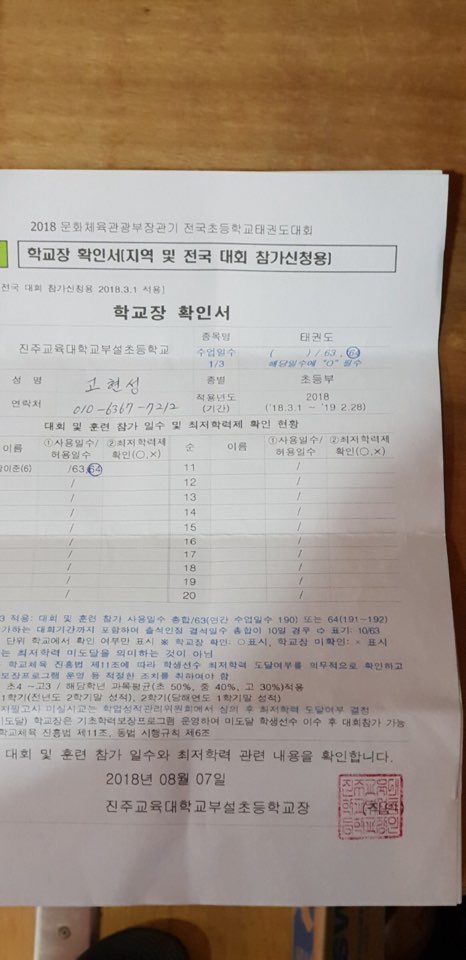 2018 문화체육관광부장관기 전국초등학교태권도대회
학교장 확인서(지역 및 전국 대회 참가신청용)
전국 대회 참가신청용 2018.3.1 적용]
학교장 확인서
진주교육대학교부설초등학교 종목명 태권도
수업일수 1/3 ( ) / 63, 64
해당일수에 "O" 필수
성 명 고현성 종별 초등부
연락처 010-6367-7212 적용년도 (기간) 2018 ('18.3.1 ~ '19 2.28)
대회 및 훈련 참가 일수 및 최저학력제 확인 현황
이름 ①사용일수/허용일수 ②최저학력제 확인(○,×) 순 이름 ①사용일수/허용일수 ②최저학력제 확인(○,×)
이준(6) /63,64 11 /
/ 12 /
/ 13 /
/ 14 /
/ 15 /
/ 16 /
/ 17 /
/ 18 /
/ 19 /
/ 20 /
3 적용: 대회 및 훈련 참가 사용일수 총합/63(연간 수업일수 190) 또는 64(191~192)
가하는 대회기간까지 포함하여 출석인정 결석일수 총합이 10일 경우 ⇨ 표기: 10/63
단위 학교에서 확인 여부만 표시 ※ 학교장 확인: ○표시, 학교장 미확인: × 표시
는 최저학력 미도달을 의미하는 것이 아님
학교체육 진흥법 제11조에 따라 학생선수 최저학력 도달여부를 의무적으로 확인하고
보장프로그램 운영 등 적절한 조치를 취하여야 함
초4 ~고3 / 해당학년 과목평균(초 50%, 중 40%, 고 30%)적용
1학기(전년도 2학기말 성적), 2학기(당해연도 1학기말 성적)
지필고사 미실시교는 학업성적관리위원회에서 심의 후 최저학력 도달여부 결정
미도달) 학교장은 기초학력보장프로그램 운영하여 미도달 학생선수 이수 후 대회참가 가능
학교체육 진흥법 제11조, 동법 시행규칙 제6조
대회 및 훈련 참가 일수와 최저학력 관련 내용을 확인합니다.
2018년 08월 07일
진주교육대학교부설초등학교장 (직인)